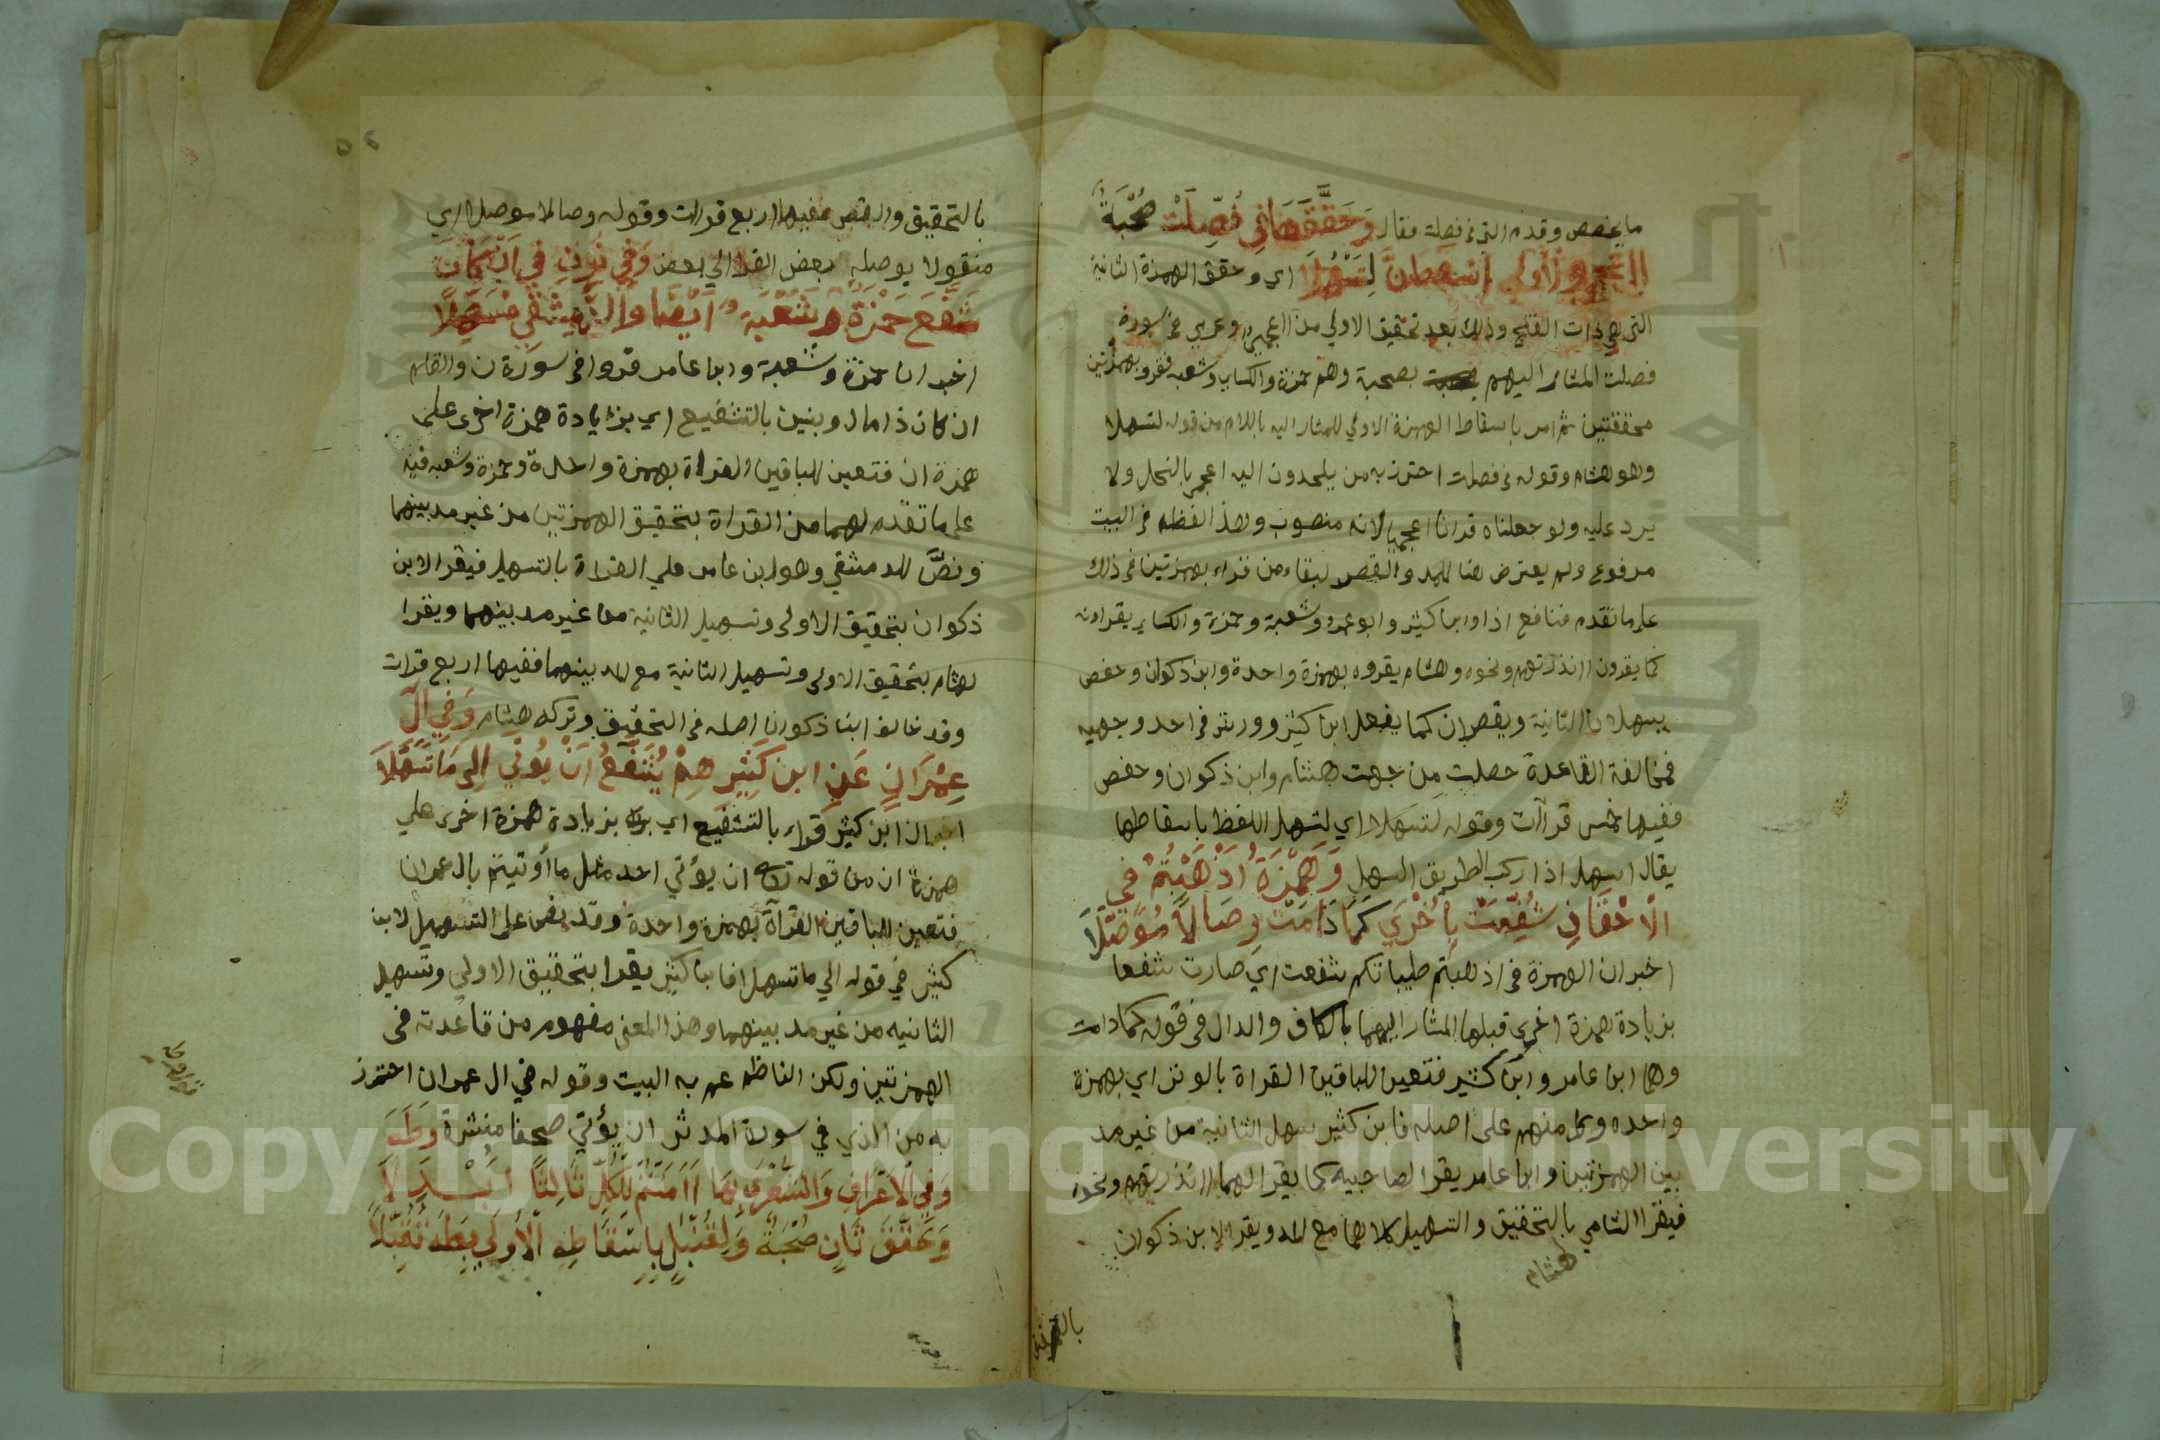 ما يخصص وقدم التي في فصلت فقال وَحَقَّقَهَا فِي فُصِّلَتْ صُحْبَةٌ
ءاعجمي والأولى اسقطن لِتَسْهُلَا اي وحقق الهمزة الثانية
التي هي ذات الفتح وذلك بعد تحقيق الاولي من ااعجمي وعربي في سورة
فصلت المشار اليهم بصحبة وهم حمزة والكساي وشعبه فقروا بهمزتين
محققتين ثم امر باسقاط الهمزة الاولي للمشار اليه باللام من قوله لتسهلا
وهو هشام وقوله في فصلت احترز به من يلحدون اليه اعجمي بالنحل ولا
يرد عليه ولو جعلناه قرانا اعجميا لانه منصوب وهذا لفظه في البيت
مرفوع ولم يعترض هنا للمد والقصر لبقاء من قراء بهمزتين في ذلك
علي ما تقدم فنافع اذا وابن كثير وابو عمرو وشعبة وحمزة والكساي يقراونه
كما يقرون ااندرتهم ونحوه وهشام يقروه بهمزة واحدة وابن ذكوان وحفص
يسهلان الثانية ويقصران كما يفعل ابن كثير وورش في احد وجهيه
فمخالفة القاعدة حصلت من جهت هشام وابن ذكوان وحفص
ففيها خمس قراآت وقوله لتسهلا اي لتسهل اللفظ باسقاطها
يقال اسهل اذا ركب الطريق السهل وَهَمْزَةُ اَذْهَبْتُمْ فِي
الْاَحْقَافِ شُفِّعَتْ بِأُخْرَي كَمَا دَامَتْ وِصَالاً مُوَصَّلَا
اخبر ان الهمزة في اذهبتم طيباتكم شفعت اي صارت شفعا
بزيادة همزة اخري قبلها المشار اليهما بالكاف والدال في قوله كما دامت
وهما ابن عامر وابن كثير فتعين للباقين القراة بالوتر اي بهمزة
واحده وكل منهم على اصله فابن كثير يسهل الثانية من غير مد
بين الهمزتين وابن عامر يقرا لصاحبيه كما يقرا لهما ااندرتهم ونحوه
فيقرا الشامي بالتحقيق والتسهيل كلاهما مع المد ويقرا لابن ذكوان
هشام
بالتحقيق
بالتحقيق والقصر ففيها اربع قرات وقوله وصالا موصلا اي
منقولا يوصله بعض القرا الي بعض وَفِي نُونٍ فِي اَنْ كَانَ
شَفَّعَ حَمْزَةُ وَشُعْبَةُ اَيْضًا وَالدِّمِشْقِي مُسَهِّلَا
اخبر ان حمزة وشعبة وابن عامر قروا في سورة ن والقلم
ان كان ذا مال وبنين بالتشفيع اي بزيادة همزة اخرى على
همزة ان فتعين للباقين القراة بهمزة واحدة وحمزة وشعبه فيه
علي ما تقدم لهما من القراة بتحقيق الهمزتين من غير مد بينهما
ونصَّ للدمشقي وهو ابن عامر علي القراة بالتسهيل فيقرا لابن
ذكوان بتحقيق الاولى وتسهيل الثانية من غير مد بينهما ويقرا
لهشام بتحقيق الاولى وتسهيل الثانية مع المد بينهما ففيها اربع قرات
وقد خالف ابن ذكوان اصله في التحقيق وتركه هشام وَفِي آلِ
عِمْرَانٍ عَنِ ابن كَثِيرِهِمْ يُشَفَّعُ اَنْ يُؤْتَي اِلَى مَا تَسَهَّلَا
ان ابن كثير قراء بالتشفيع اي بزيادة همزة اخرى علي
همزة ان من قوله ان يؤتي احد مثل ما أوتيتم بال عمران
فتعين للباقين القرآة بهمزة واحدة وقد نص على التسهيل لابن
كثير في قوله الي ما تسهلا فابن كثير يقرا بتحقيق الاولي وتسهيل
الثانيه من غير مد بينهما وهذا المعني مفهوم من قاعدته في
الهمزتين ولكن الناظم عم به البيت وقوله في ال عمران احترز
به من الذي في سورة المدثر ان يؤتي صحفا منشرة وَطَهَ
وَفِي الْاَعْرَافِ وَالشُّعَرَا بِهَا ءَاَمَنْتُمْ لِلْكُلِّ ثَالِثًا اُبْدِلَا
وَحَقَّقَ ثَانٍ صُحْبَةٌ وَلِقُنْبُلٍ بِإِسْقَاطِهِ الْأُولَي بِطَهَ تُقُبِّلَا
Copyright © King Saud University
1957